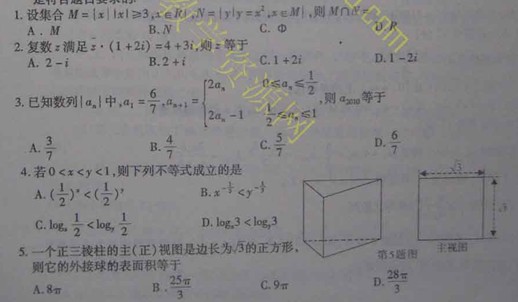 1. 设集合 M={x||x|≥3,x∈R},N={y|y=x²,x∈M},则 M∩N=
A. M B. N C. Φ D. R
2. 复数 z 满足 z̄·(1+2i)=4+3i,则 z 等于
A. 2-i B. 2+i C. 1+2i D. 1-2i
3. 已知数列{aₙ}中,a₁=6/7,aₙ₊₁={2aₙ 0≤aₙ≤1/2
2aₙ-1 1/2≤aₙ≤1 ,则 a₂₀₁₀等于
A. 3/7 B. 4/7 C. 5/7 D. 6/7
4. 若 0<x<y<1,则下列不等式成立的是
A. (1/2)ˣ<(1/2)ʸ B. x^(-1/2)<y^(-1/2)
C. logₓ 1/2<log_y 1/2 D. logₓ3<log_y3
5. 一个正三棱柱的主(正)视图是边长为√3的正方形,
则它的外接球的表面积等于
A. 8π B. 25π/3 C. 9π D. 28π/3
√3
√3
第5题图
主视图
教学资源网